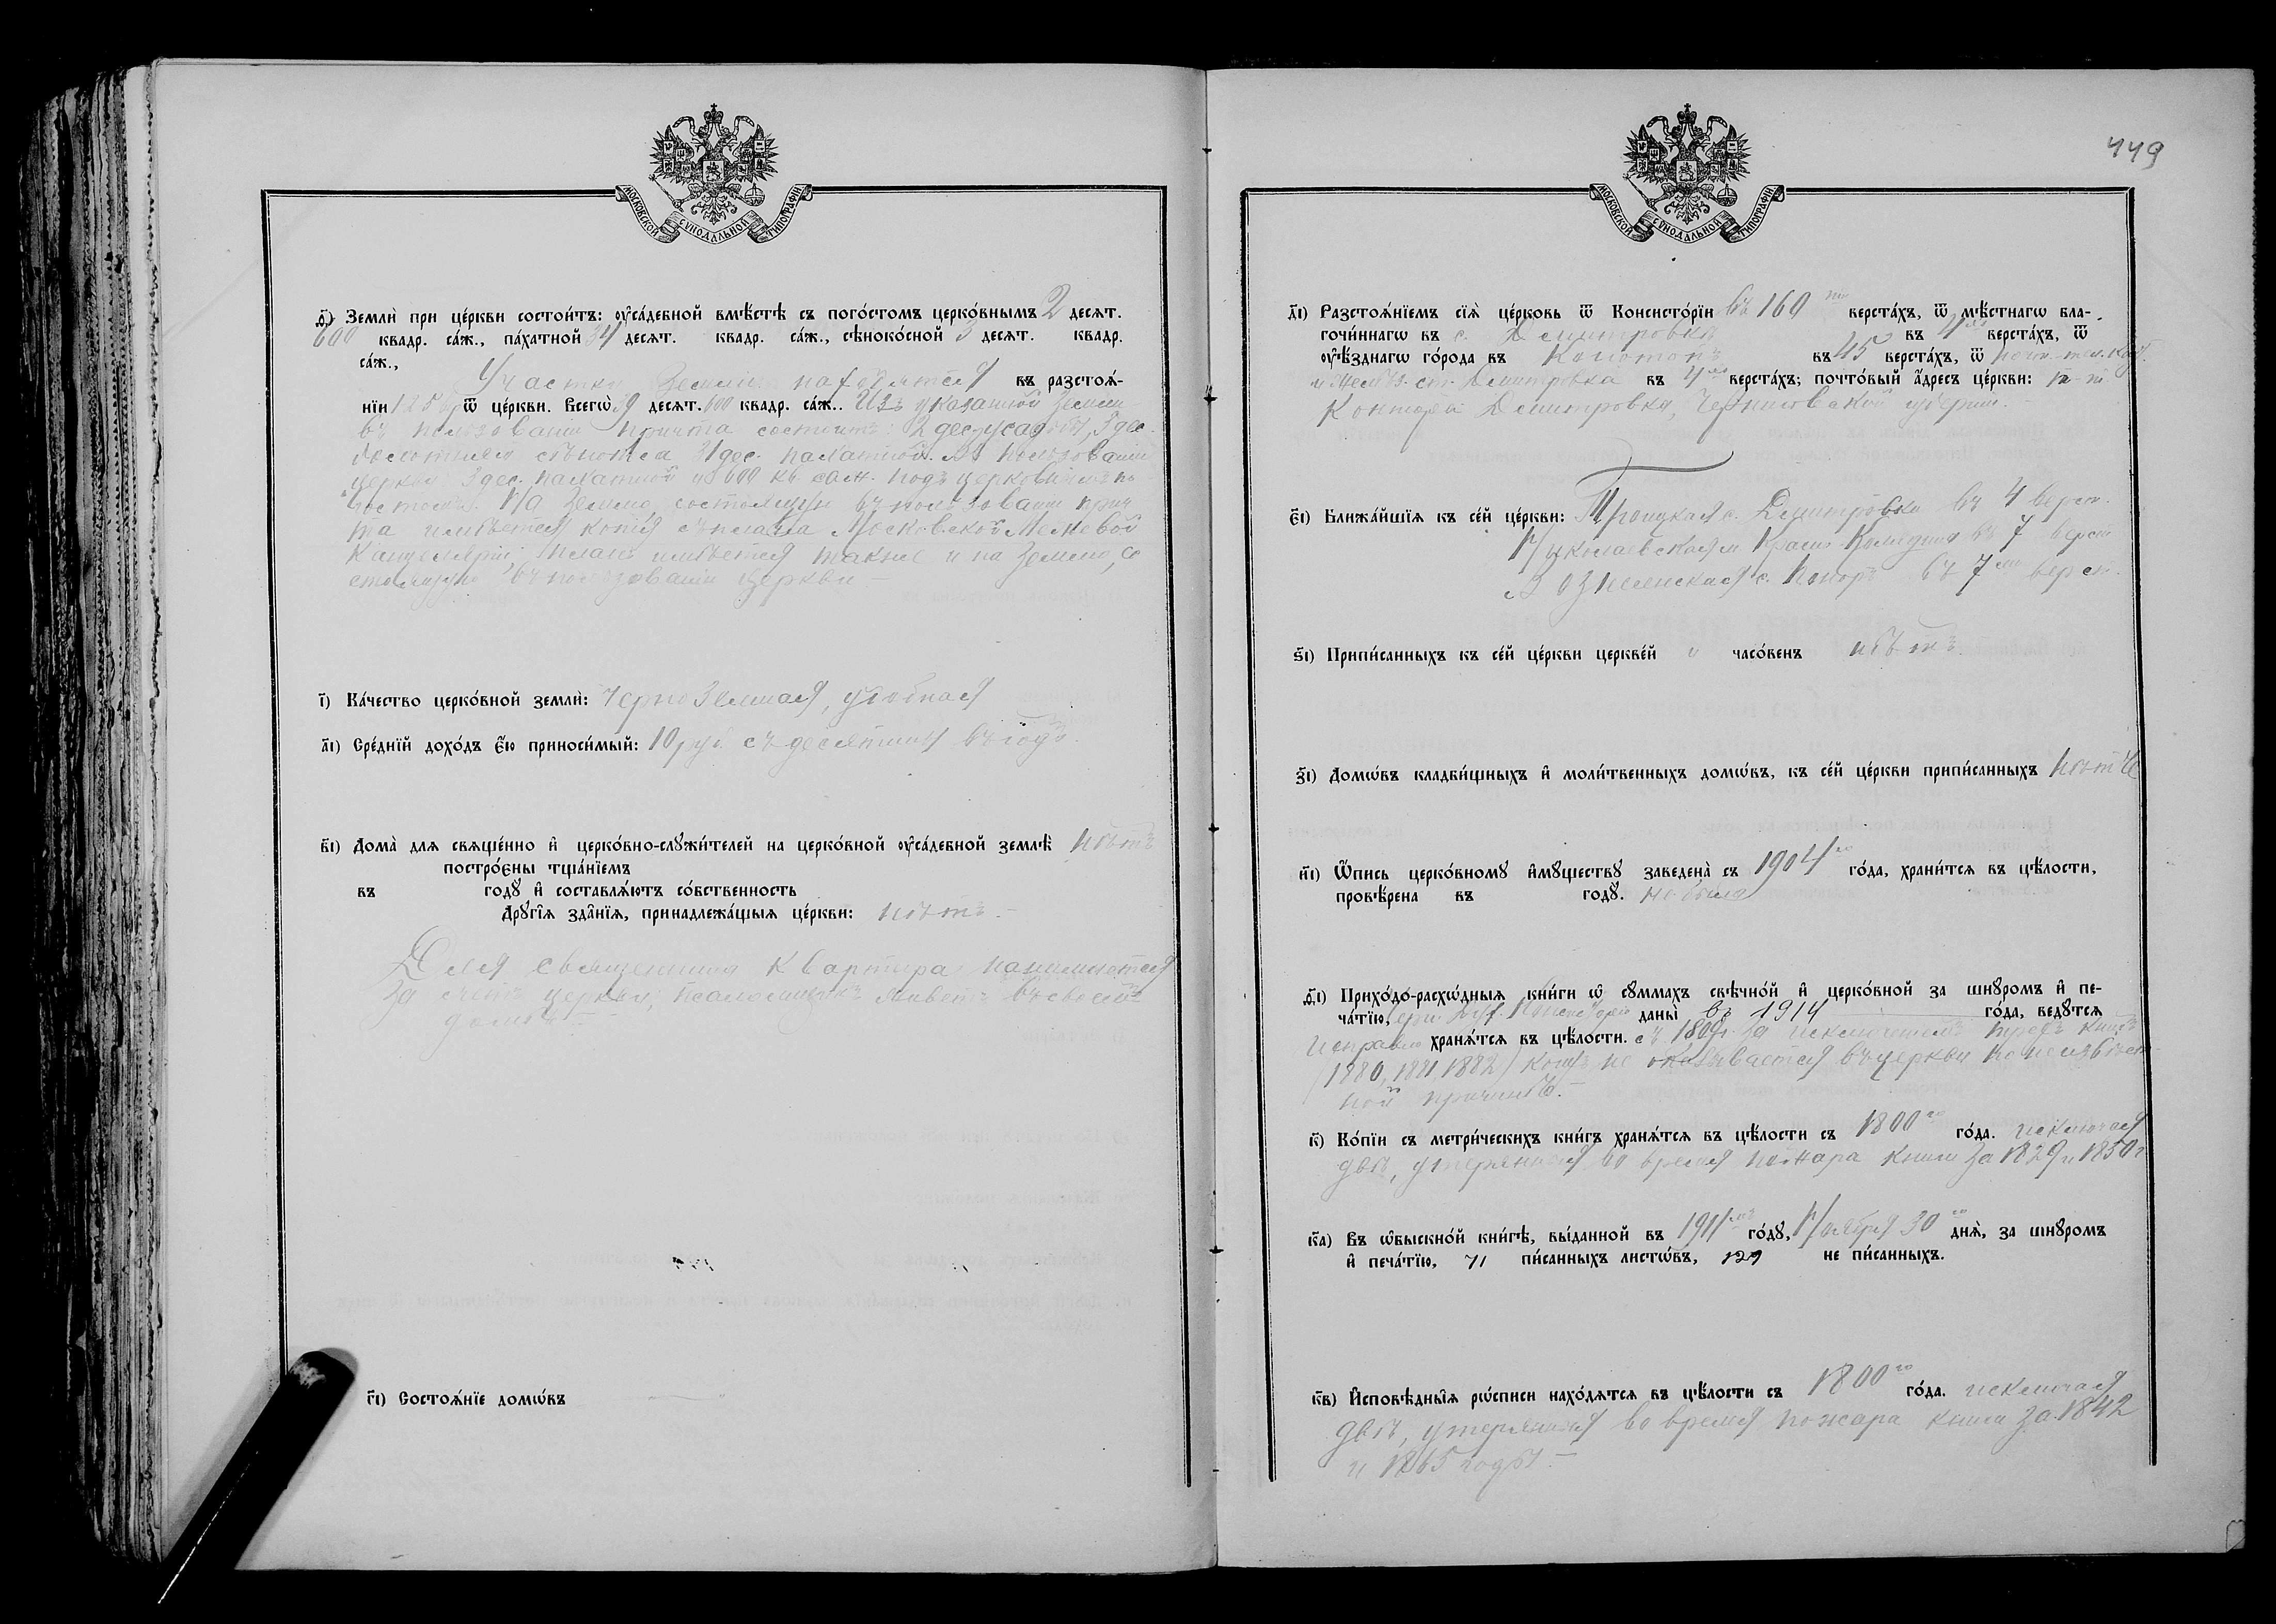 МОСКОВСКОЙ СѴНОДАЛЬНОЙ ТИПОГРАФІИ
ѳ҃) Землѝ при це́ркви состои́тъ: ᲂу҆са́дебной вмѣ́стѣ съ пого́стомъ церко́внымъ 2 десѧт.
600 квадр. са́ж., па́хатной 34 десѧт. квадр. са́ж., сѣноко́сной 3 десѧт. квадр.
са́ж., Участки земли находятся въ разстоѧ́-
нїи 125 в. ѿ це́ркви. Всегѡ̀ 39 десѧт. 600 квадр. са́ж.. Изъ указанной земли
въ пользованіи причта состоитъ: 2 дес. усадьбы, 3 дес.
сѣнокоса 31 дес. пахатной. Въ пользованіи
церкви 3 дес. пахатной и 600 кв. саж. подъ церковнымъ по
гостомъ. На землю, состоящую въ пользованіи прич
та имѣется копія съ плана Московской Межевой
Канцеляріи; планъ имѣется также и на землю, со
стоящую въ пользованіи церкви —
і҃) Ка́чество церко́вной землѝ: черноземная, удобная
а҃і) Сре́днїй дохо́дъ є҆́ю приноси́мый: 10 руб. съ десятины въ годъ.
в҃і) Дома̀ длѧ свѧще́нно и҆ церко́вно-слꙋжи́телей на церко́вной ᲂу҆са́дебной землѣ̀ нѣтъ
постро́єны тща́нїемъ
въ годꙋ̀ и҆ составлѧ́ютъ со́бственность
Дрꙋгі̑ѧ зда̑нїѧ, принадлежа́щыѧ це́ркви: нѣтъ. —
Для священника квартира нанимается
за счетъ церкви; псаломщикъ живетъ въ своемъ
домѣ —
г҃і) Состоѧ́нїе домѡ́въ —
449
МОСКОВСКОЙ СѴНОДАЛЬНОЙ ТИПОГРАФІИ
д҃і) Разстоѧ́нїемъ сїѧ̀ це́рковь ѿ Консисто́рїи въ 160 ти верста́хъ, ѿ мѣ́стнагѡ бла-
гочи́ннагѡ въ с. Дмитровка въ 4 хъ верста́хъ, ѿ
ᲂу҆ѣ́зднагѡ го́рода въ Конотопъ въ 45 верста́хъ, ѿ почт.-тел. кон.
и желѣз. ст. Дмитровка въ 4 хъ верста́хъ; почто́вый а҆́дресъ це́ркви: п.-т.
Контора Дмитровка, Черниговской губерніи. —
є҃і) Ближа́йшїѧ къ се́й це́ркви: Троицкая с. Дмитровки въ 4 верст.
Николаевская м. Красн. Колядина въ 7 верст
Вознесенская с. Поповъ въ 7 верст.
ѕ҃і) Припи́санныхъ къ се́й це́ркви церкве́й и часо́венъ нѣтъ.
з҃і) Домѡ́въ кладби́щныхъ и҆ моли́твенныхъ домѡ́въ, къ се́й це́ркви припи́санныхъ нѣтъ
и҃і) Ѻ҆́пись церко́вномꙋ и҆мꙋ́ществꙋ заведена̀ съ 1904 го го́да, храни́тсѧ въ цѣ́лости,
провѣ́рена въ годꙋ̀. не была
ѳ҃і) Прихо́до-расхѡ́дныѧ кни́ги ѡ҆ сꙋммахъ свѣчно́й и҆ церко́вной за шнꙋро́мъ и҆ пе-
ча́тїю, Консисторіи даны̀ въ 1914 го́да, ведꙋ́тсѧ
исправно хранѧ́тсѧ въ цѣ́лости. съ 1809 г. за исключеніемъ трехъ книгъ
(1880, 1881, 1882) коихъ не оказывается въ церкви по неизвѣст
ной причинѣ. —
к҃) Ко́пїи съ метри́ческихъ кни́гъ хранѧ́тсѧ въ цѣ́лости съ 1800 го го́да. исключая
двѣ, утерянныя во время пожара книги за 1829 и 1850 г
к҃а) Въ ѡ҆́быскно́й кни́гѣ, вы́данной въ 1911 мъ годꙋ̀, Ноября 30 го днѧ̀, за шнꙋро́мъ
и҆ печа́тїю, 71 пи́санныхъ листѡ́въ, 129 не пи́санныхъ.
к҃в) И҆сповѣ́дныѧ рѡ́списи нахо́дѧтсѧ въ цѣ́лости съ 1800 го го́да. исключая
двѣ, утерянныя во время пожара книги за 1842
и 1865 годы. —